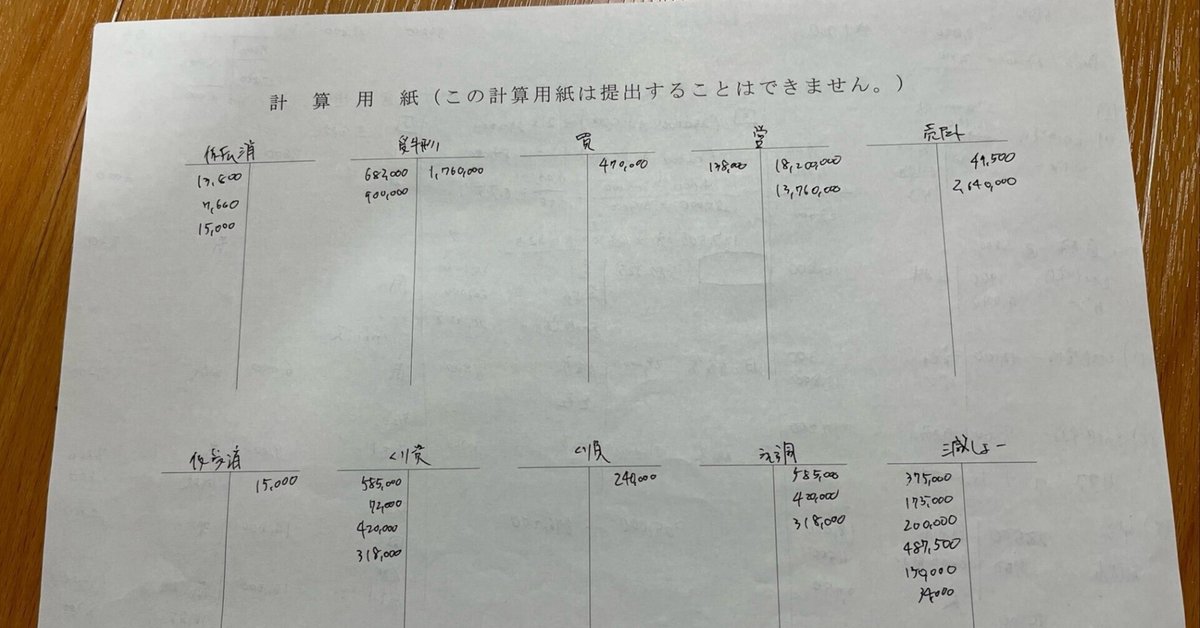 計 算 用 紙（この計算用紙は提出することはできません。）
仮払消
13,800
7,660
15,000
受手形
683,000 1,760,000
900,000
買
470,000
営
138,000 18,200,000
13,760,000
売上
49,500
2,640,000
仮受消
15,000
くり資
585,000
72,000
420,000
318,000
くり負
240,000
法調
585,000
420,000
318,000
減しょー
375,000
175,000
200,000
487,500
150,000
34,000